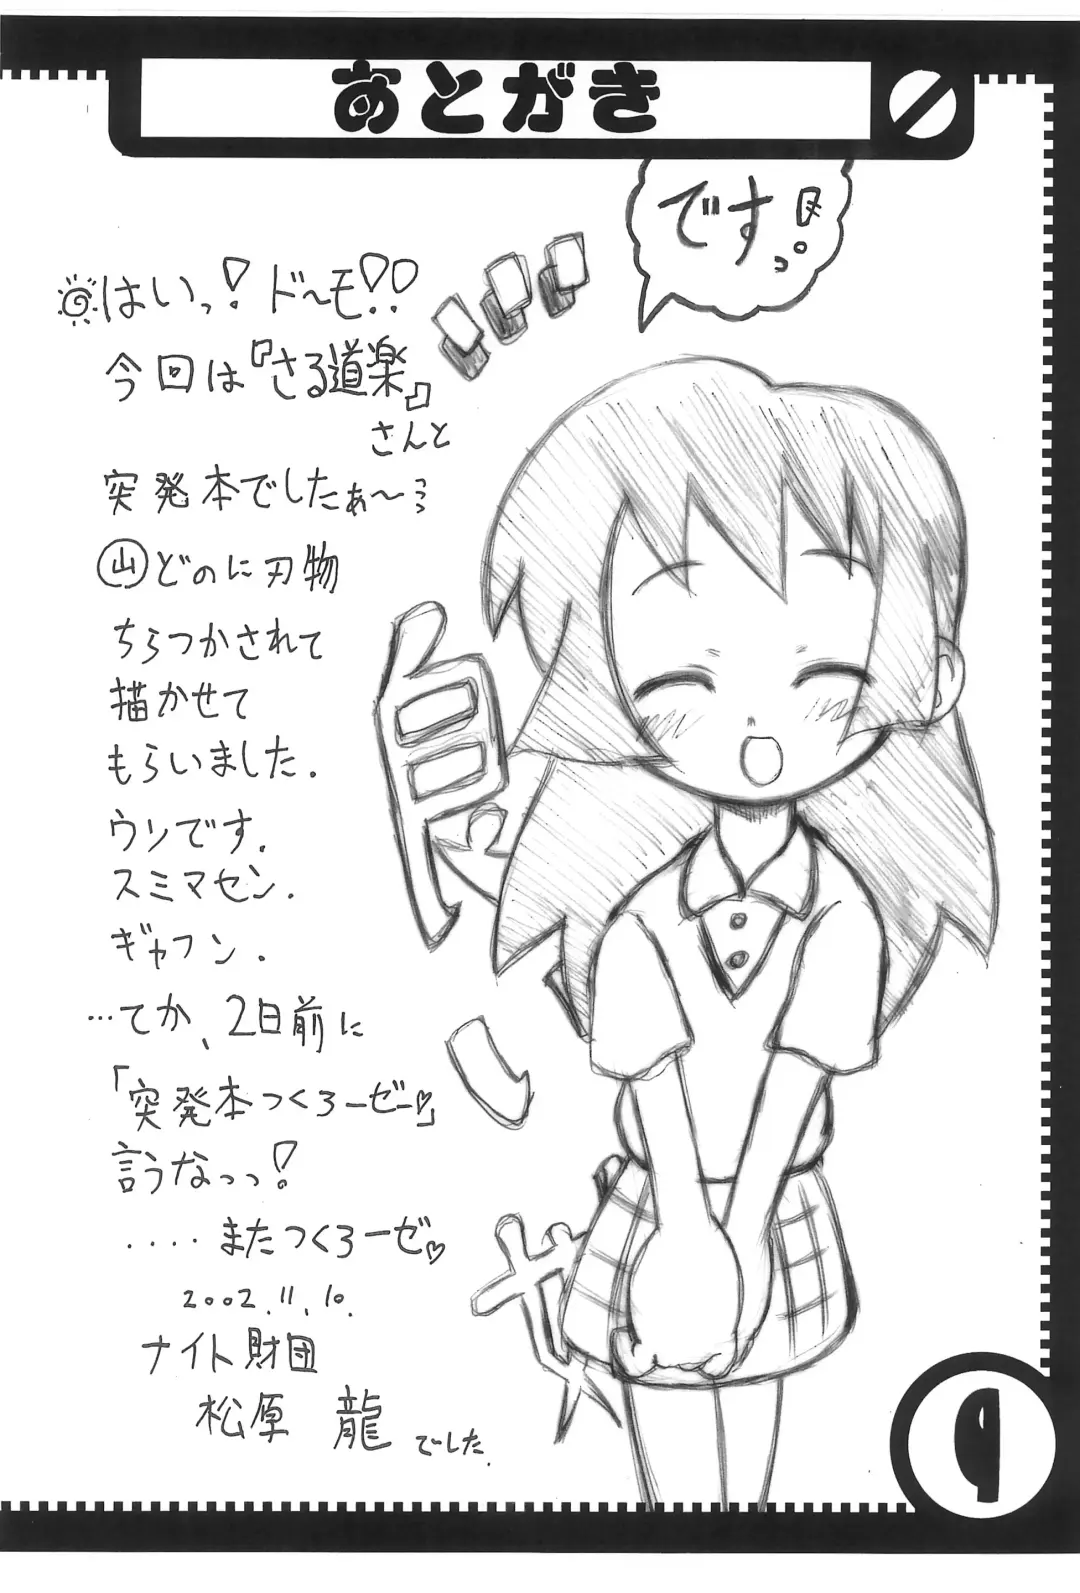 あとがき
ですっ。
はいっ!ドーモ!!
今回は『さる道楽』
さんと
突発本でしたぁ〜
山どのに刃物
ちらつかされて
描かせて
もらいました.
ウソです.
スミマセン.
ギャフン.
…てか、2日前に
「突発本つくろーぜー♡」
言うなっっ!
‥‥またつくろーぜ♡
2002.11.10.
ナイト財団
松原 龍 でした.
9